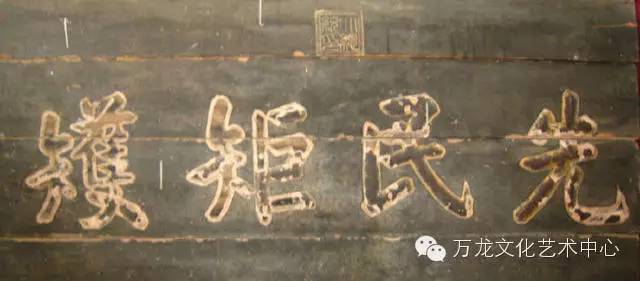 先民矩矱
万龙文化艺术中心